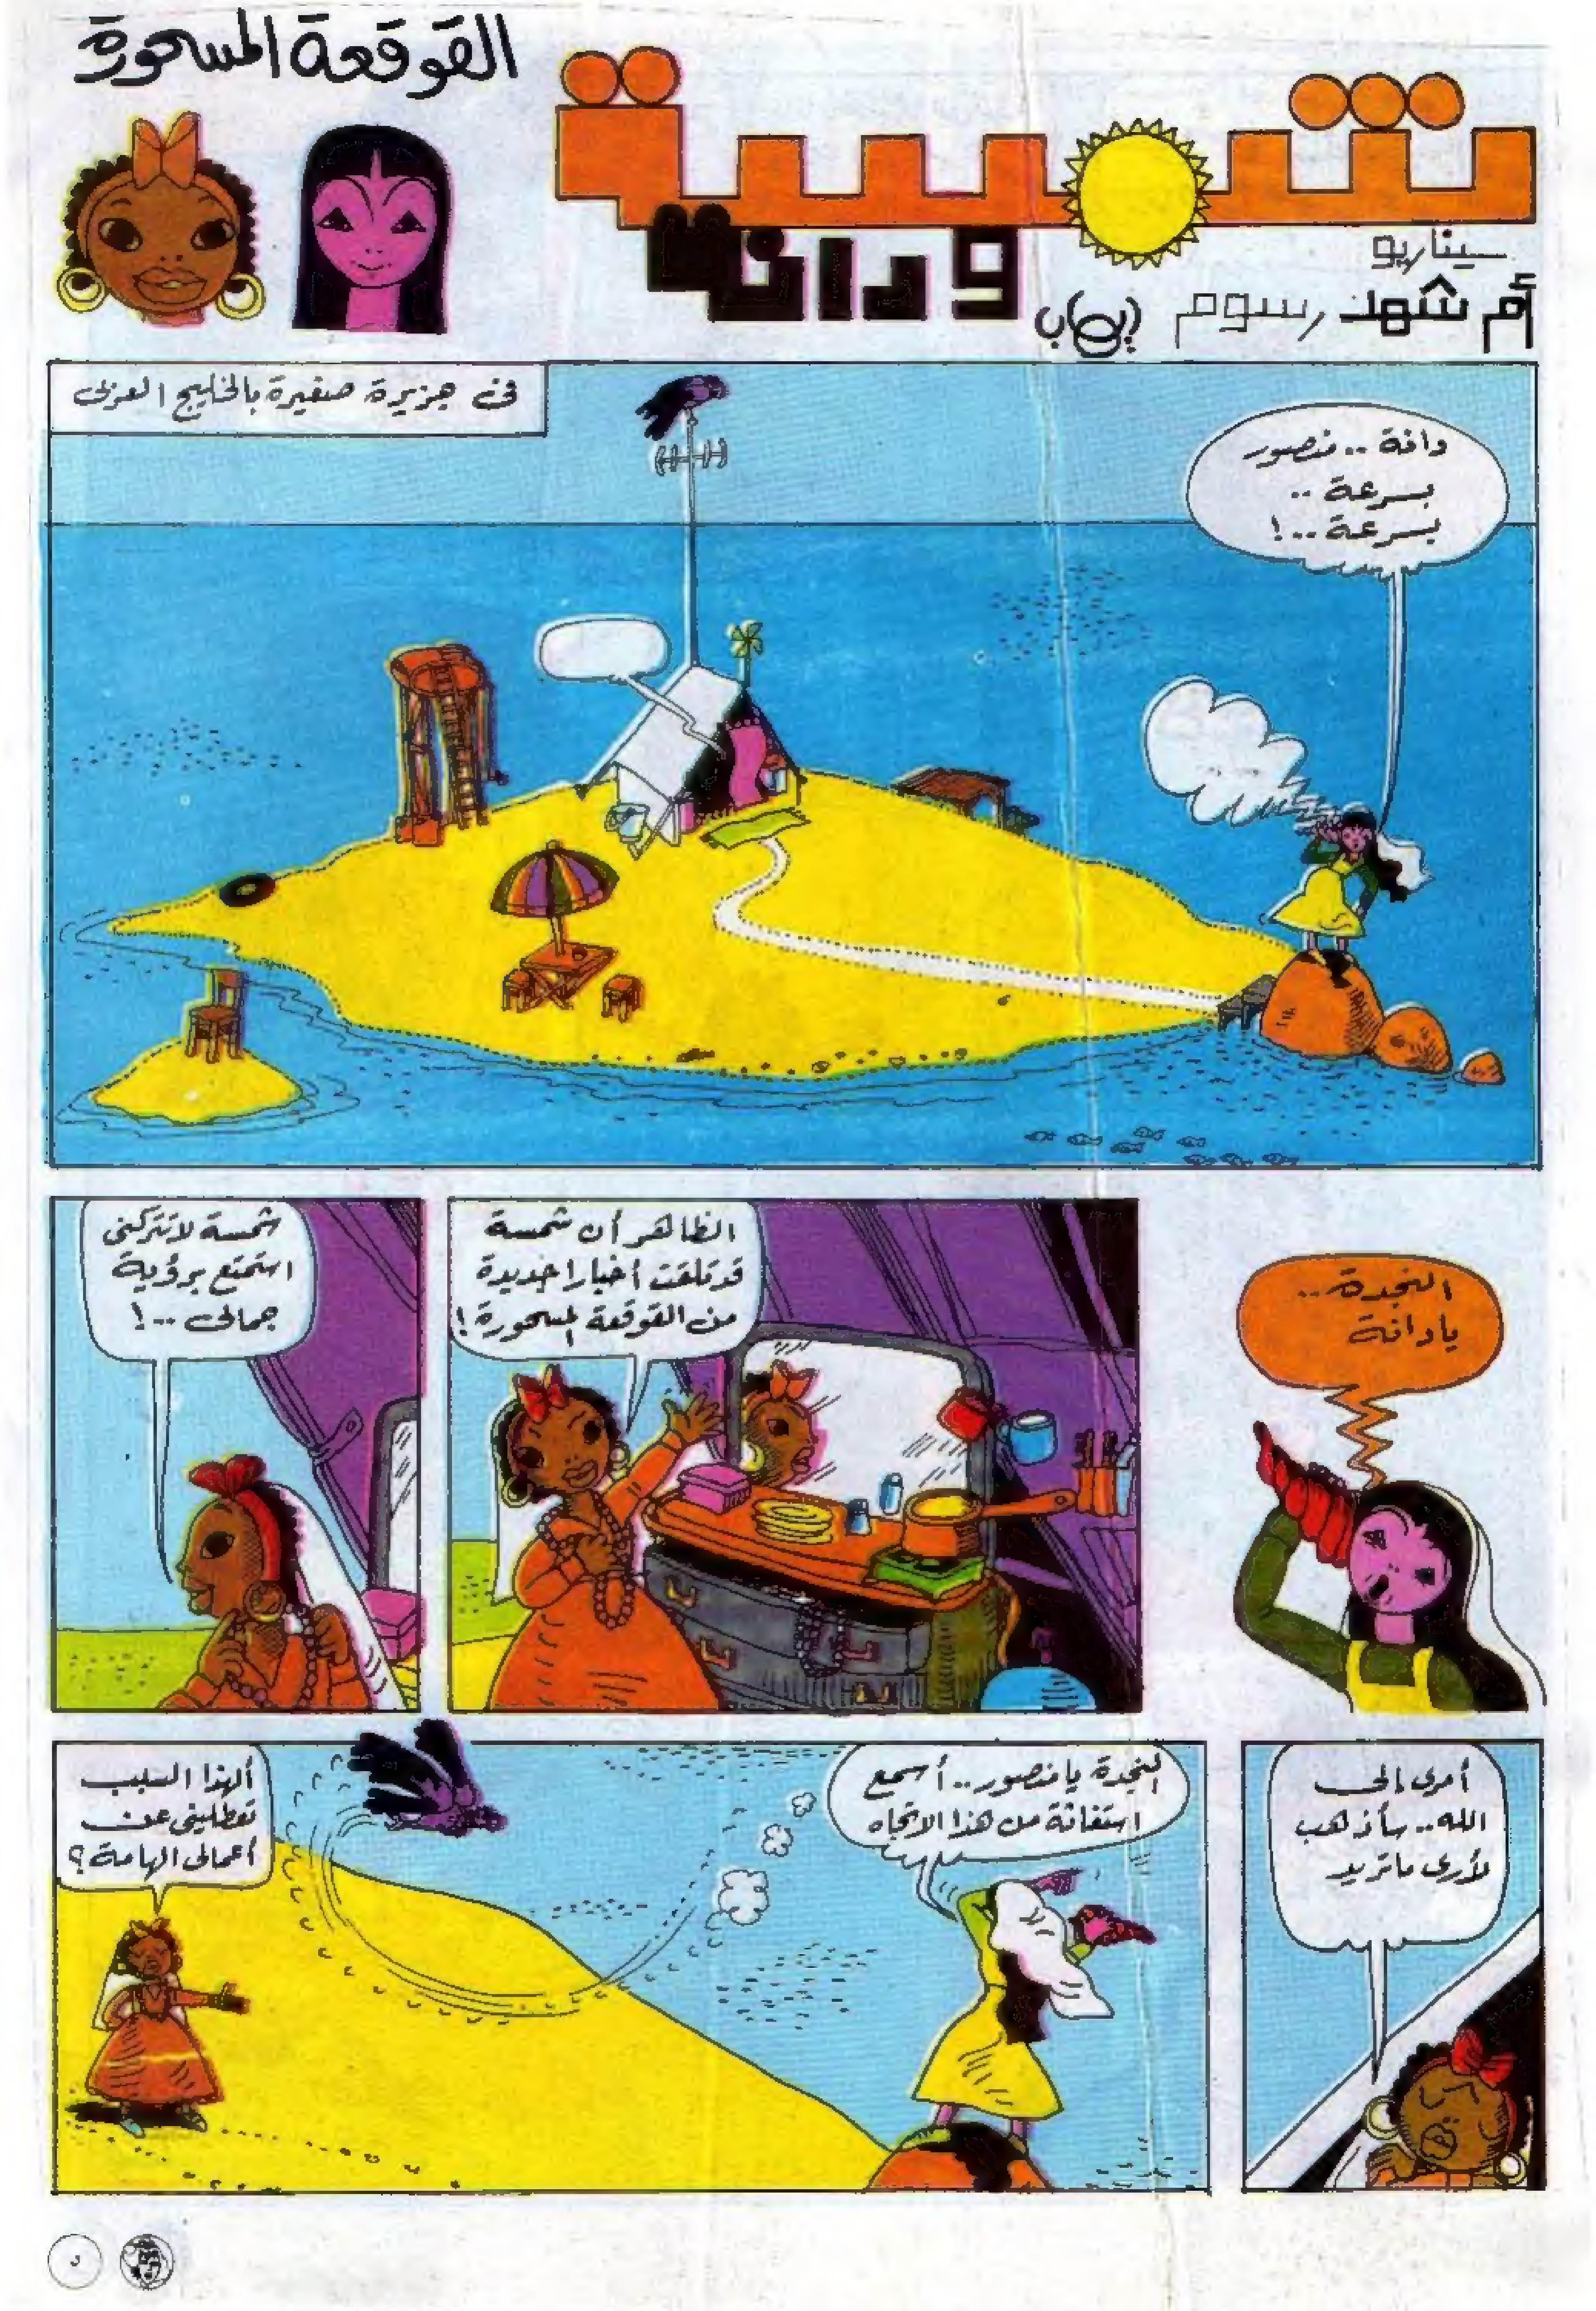 القوقعة المسحورة
شمسة
ودانة
سيناريو
أم شهد رسوم إيهاب
فى جزيرة صغيرة بالخليج العربى
دانة .. منصور
بسرعة ..
بسرعة ..!
النجدة ..
يادانة
الظاهر أن شمسة
قد تلقت أخبارا جديدة
من القوقعة المسحورة!
شمسة لا تتركنى
استمتع برؤية
جمالى ..!
أمرى إلى
الله .. سأذهب
لأرى ماتريد
النجدة يامنصور .. أسمع
استغاثة من هذا الاتجاه
ألهذا السبب
تعطلينى عن
أعمالى الهامة؟